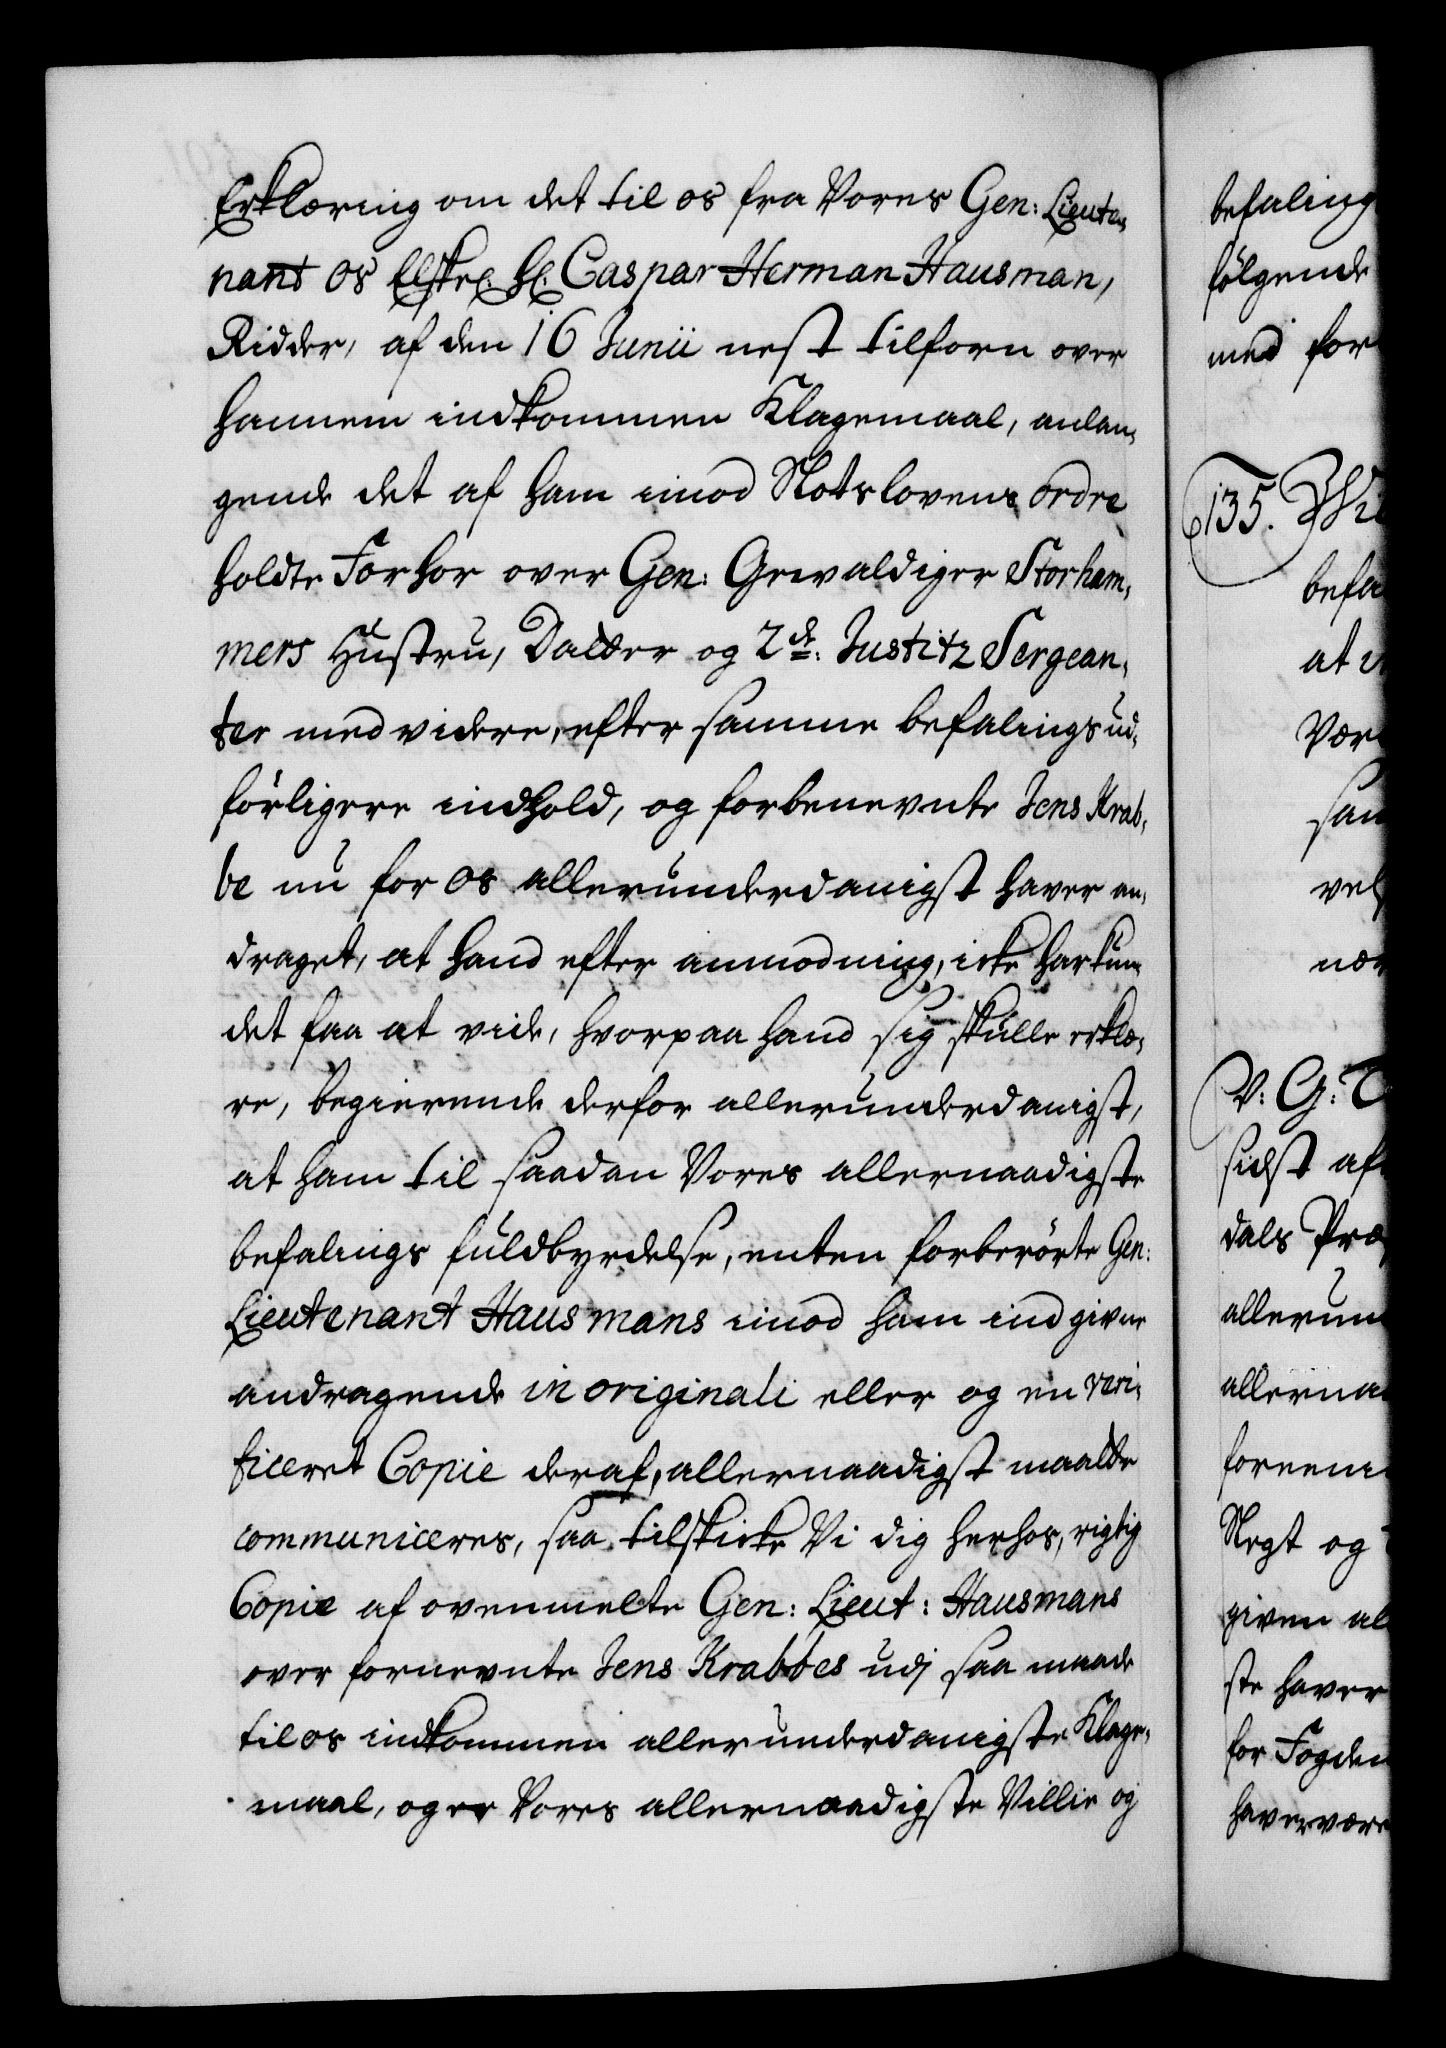 Erklæring om det til os fra Vores Gen: Lieute,
nant os Elskel: Hr: Caspar Herman Hausman,
Ridder, af den 16 Junii nest tilforn over
hannem indkommen Klagemaal, anlan,
gende det af ham imod Slotslovens ordre
holdte Forhor over Gen: Gewaldiger Storham,
mers Hustru, Datter og 2de: Justitz Sergean,
ter med videre, efter samme befalings ud,
förligere indhold, og forbenevnte Jens Krab,
be nu for os allerunderdanigst haver an,
draget, at hand efter anmodning, icke har kun,
det faa at vide, hvorpaa hand sig skulle erklæ,
re, begierende derfor allerunderdanigst,
at ham til saadan Vores allernaadigste
befalings fuldbyrdelse, enten forberörte Gen:
Lieutenant Hausmans imod ham indgivne
andragende in originali eller og en veri,
ficeret Copie deraf, allernaadigst maatte
communiceres, saa tilskicke Vi dig herhos, rigtig
Copie af ovenmelte Gen: Lieut: Hausmans
over fornevnte Jens Krabbes udj saa maade
til os indkommen allerunderdanigste Klage,
maal, og er Vores allernaadigste Villie og
befaling
følgende
med for
135. Wi
befa
at
Vær
sam
vel
nær
V: G: T
sidst af
dals Præ
allerun
allerna
foreen
Slegt og
given al
ste haver
for Fogden
haver være